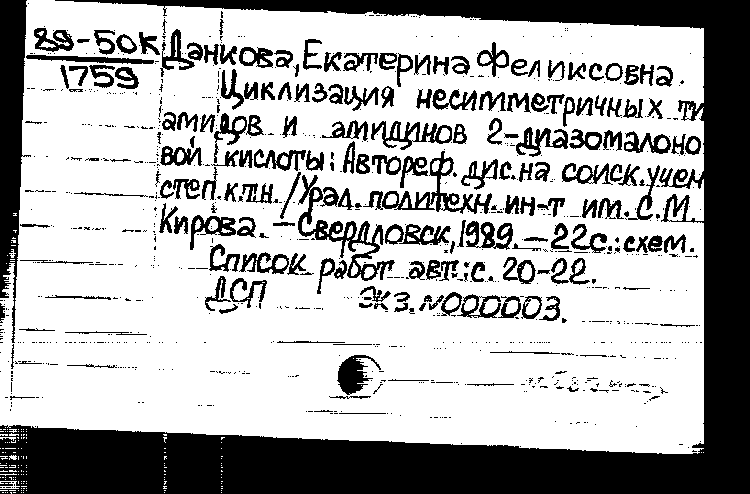 89-50К
1759
Данкова, Екатерина Феликсовна.
Циклизация несимметричных ти
амидов и амидинов 2-диазомалоно
вой кислоты: Автореф. дис. на соиск. учен
степ. к.т.н. / Урал. политехн. ин-т им. С.М.
Кирова. — Свердловск, 1989. — 22с.: схем.
Список работ авт.: с. 20-22.
ДСП ЭКЗ. N000003.